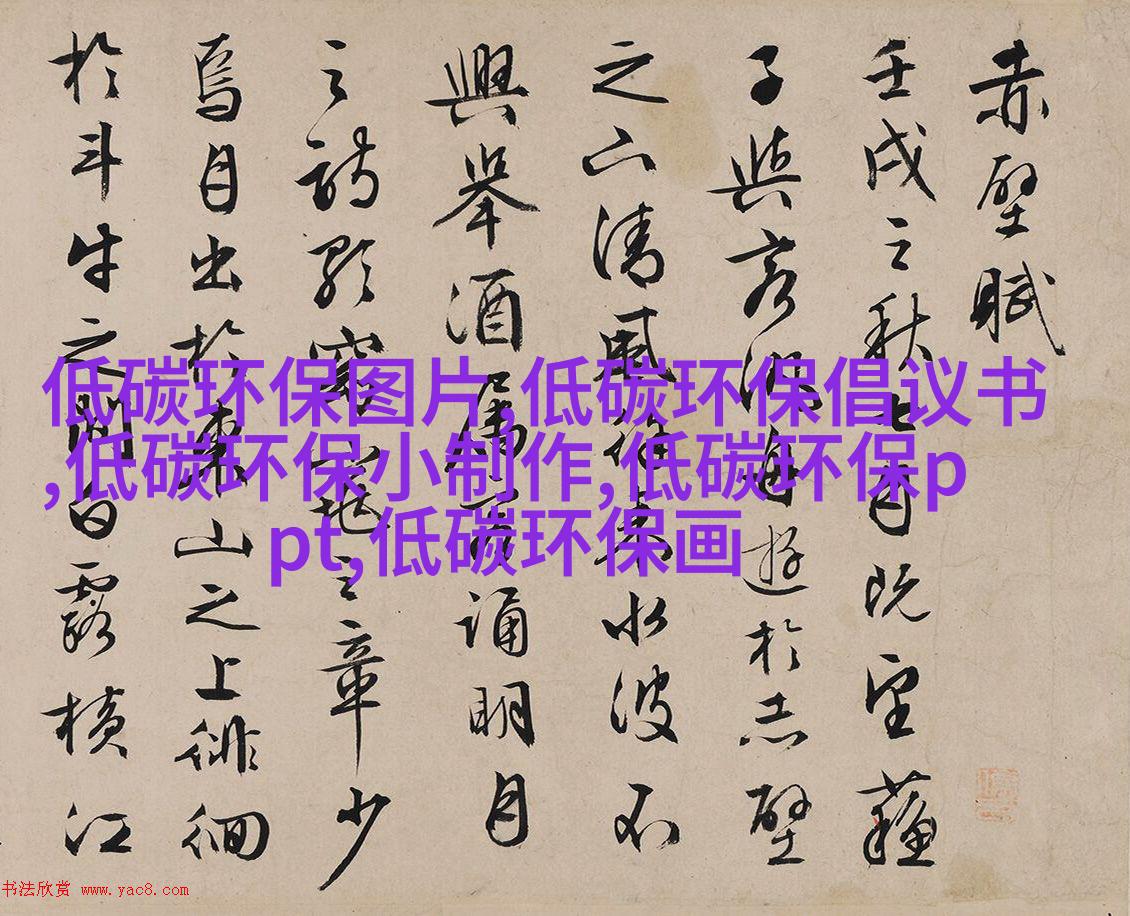 赤壁賦
壬戌之秋七月既望蘇
子與客泛舟遊於赤壁
之下清風徐來水波不
興舉酒屬客誦明月
之詩歌窈窕之章少
焉月出於東山之上徘徊
於斗牛之間白露橫江
低碳环保图片,低碳环保倡议书
,低碳环保小制作,低碳环保p
pt,低碳环保画
书法欣赏 www.yac8.com